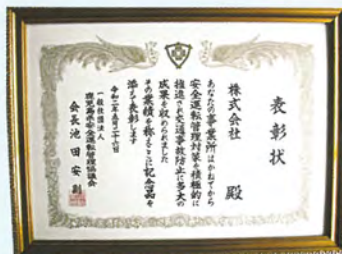 表彰状
株式会社　殿
あなたの事業所はかねてから
安全運転管理対策を積極的に
推進され交通事故防止に多大の
成果を収められました
その業績を称えここに記念品を
添えて表彰します
令和二年五月二十六日
一般社団法人
鹿児島県安全運転管理協議会
会長 池田 安